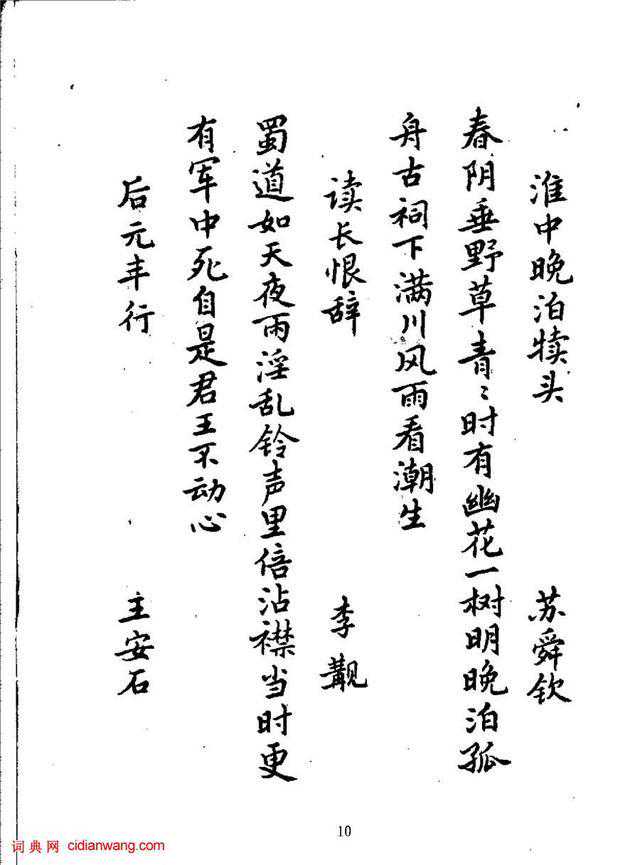 淮中晚泊犊头 苏舜钦
春阴垂野草青:时有幽花一树明晚泊孤
舟古祠下满川风雨看潮生
读长恨辞 李觏
蜀道如天夜雨淫乱铃声里倍沾襟当时更
有军中死自是君王不动心
后元丰行 主安石
10
词典网 cidianwang.com